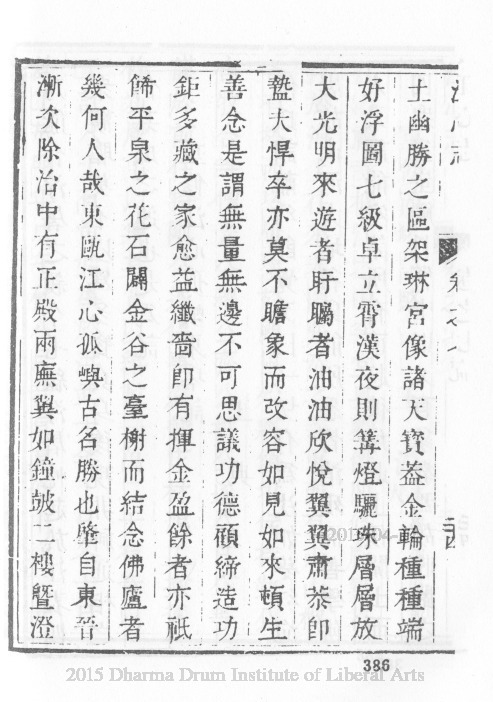 土幽勝之區架琳宮像諸天寶葢金輪種種端
好浮圖七級卓立霄漢夜則篝燈驪珠層層放
大光明來遊者盱矚者油油欣悅翼翼肅恭卽
蟄夫悍卒亦莫不瞻象而改容如見如來頓生
善念是謂無量無邊不可思議功德顧締造功
鉅多藏之家愈益纖嗇卽有揮金盈餘者亦祇
餙平泉之花石闢金谷之臺榭而結念佛廬者
幾何人哉東甌江心孤嶼古名勝也肇自東晉
漸次除治中有正殿兩廡翼如鐘皷二樓曁澄
386
2015 Dharma Drum Institute of Liberal Arts